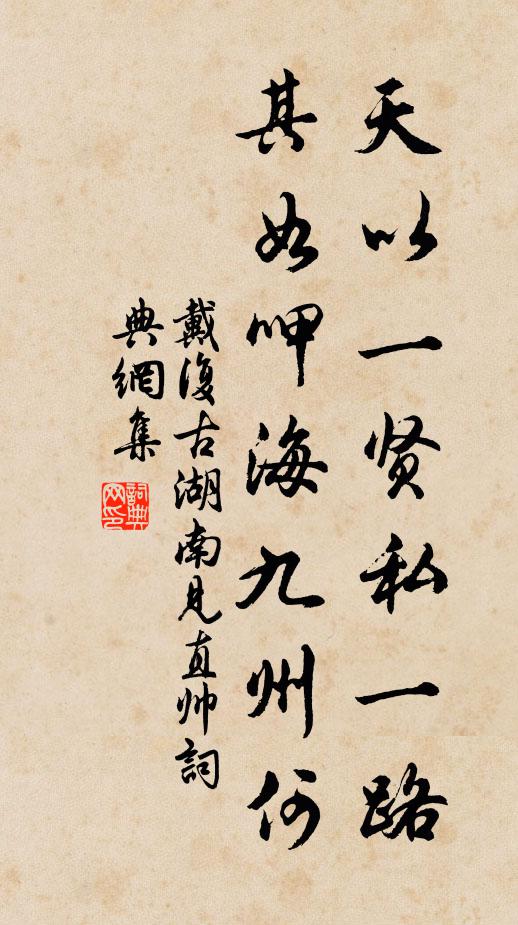 天以一贤私一路
其如呷海九州何
戴復古湖南見真帅詞
典網集
詞典
网印